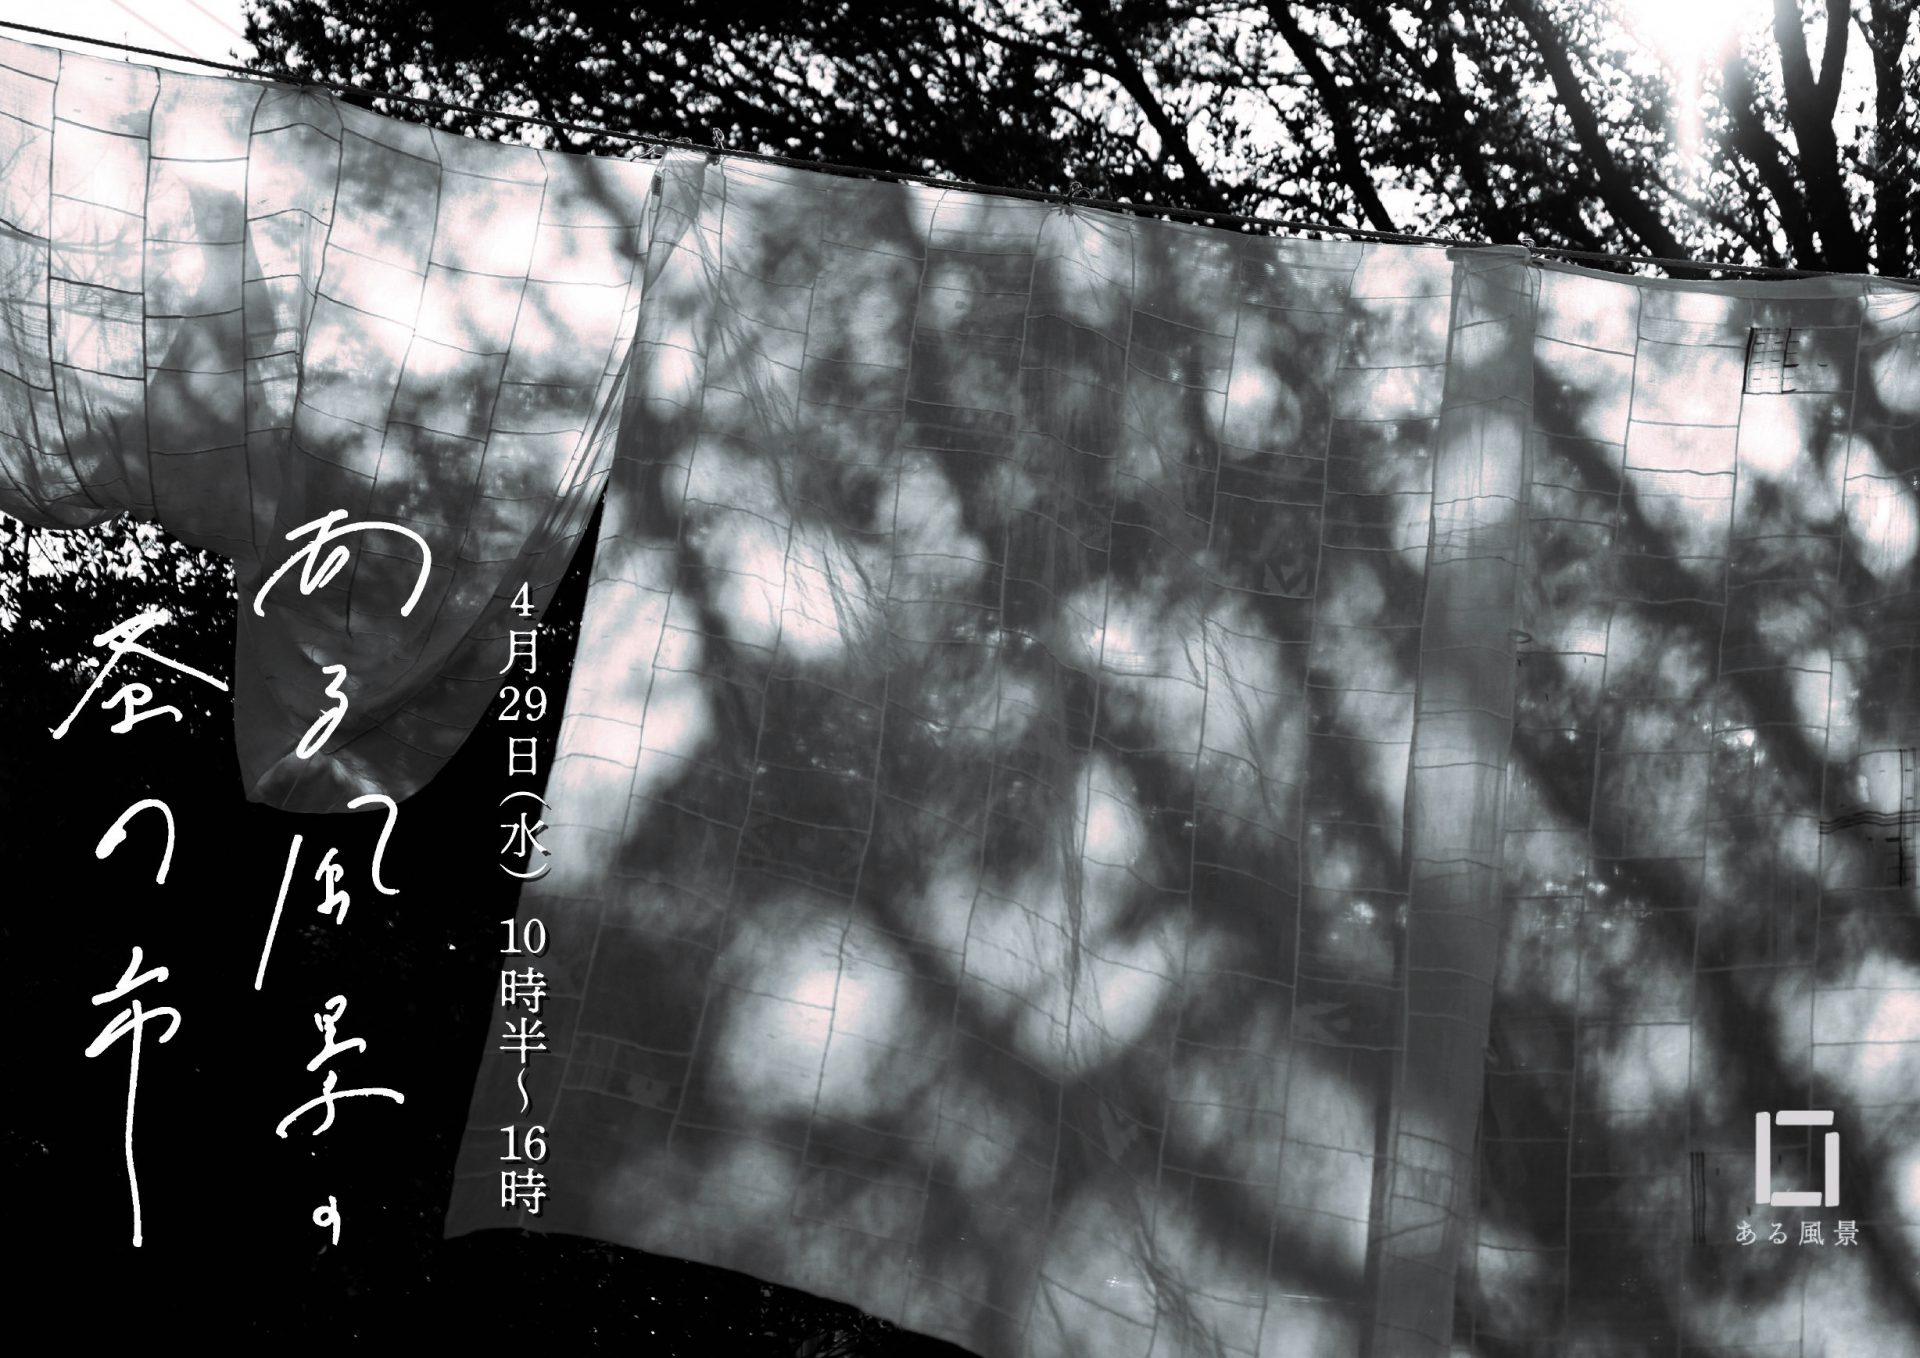 ある風景の
蚤の市
4月29日(水) 10時半〜16時
ある風景